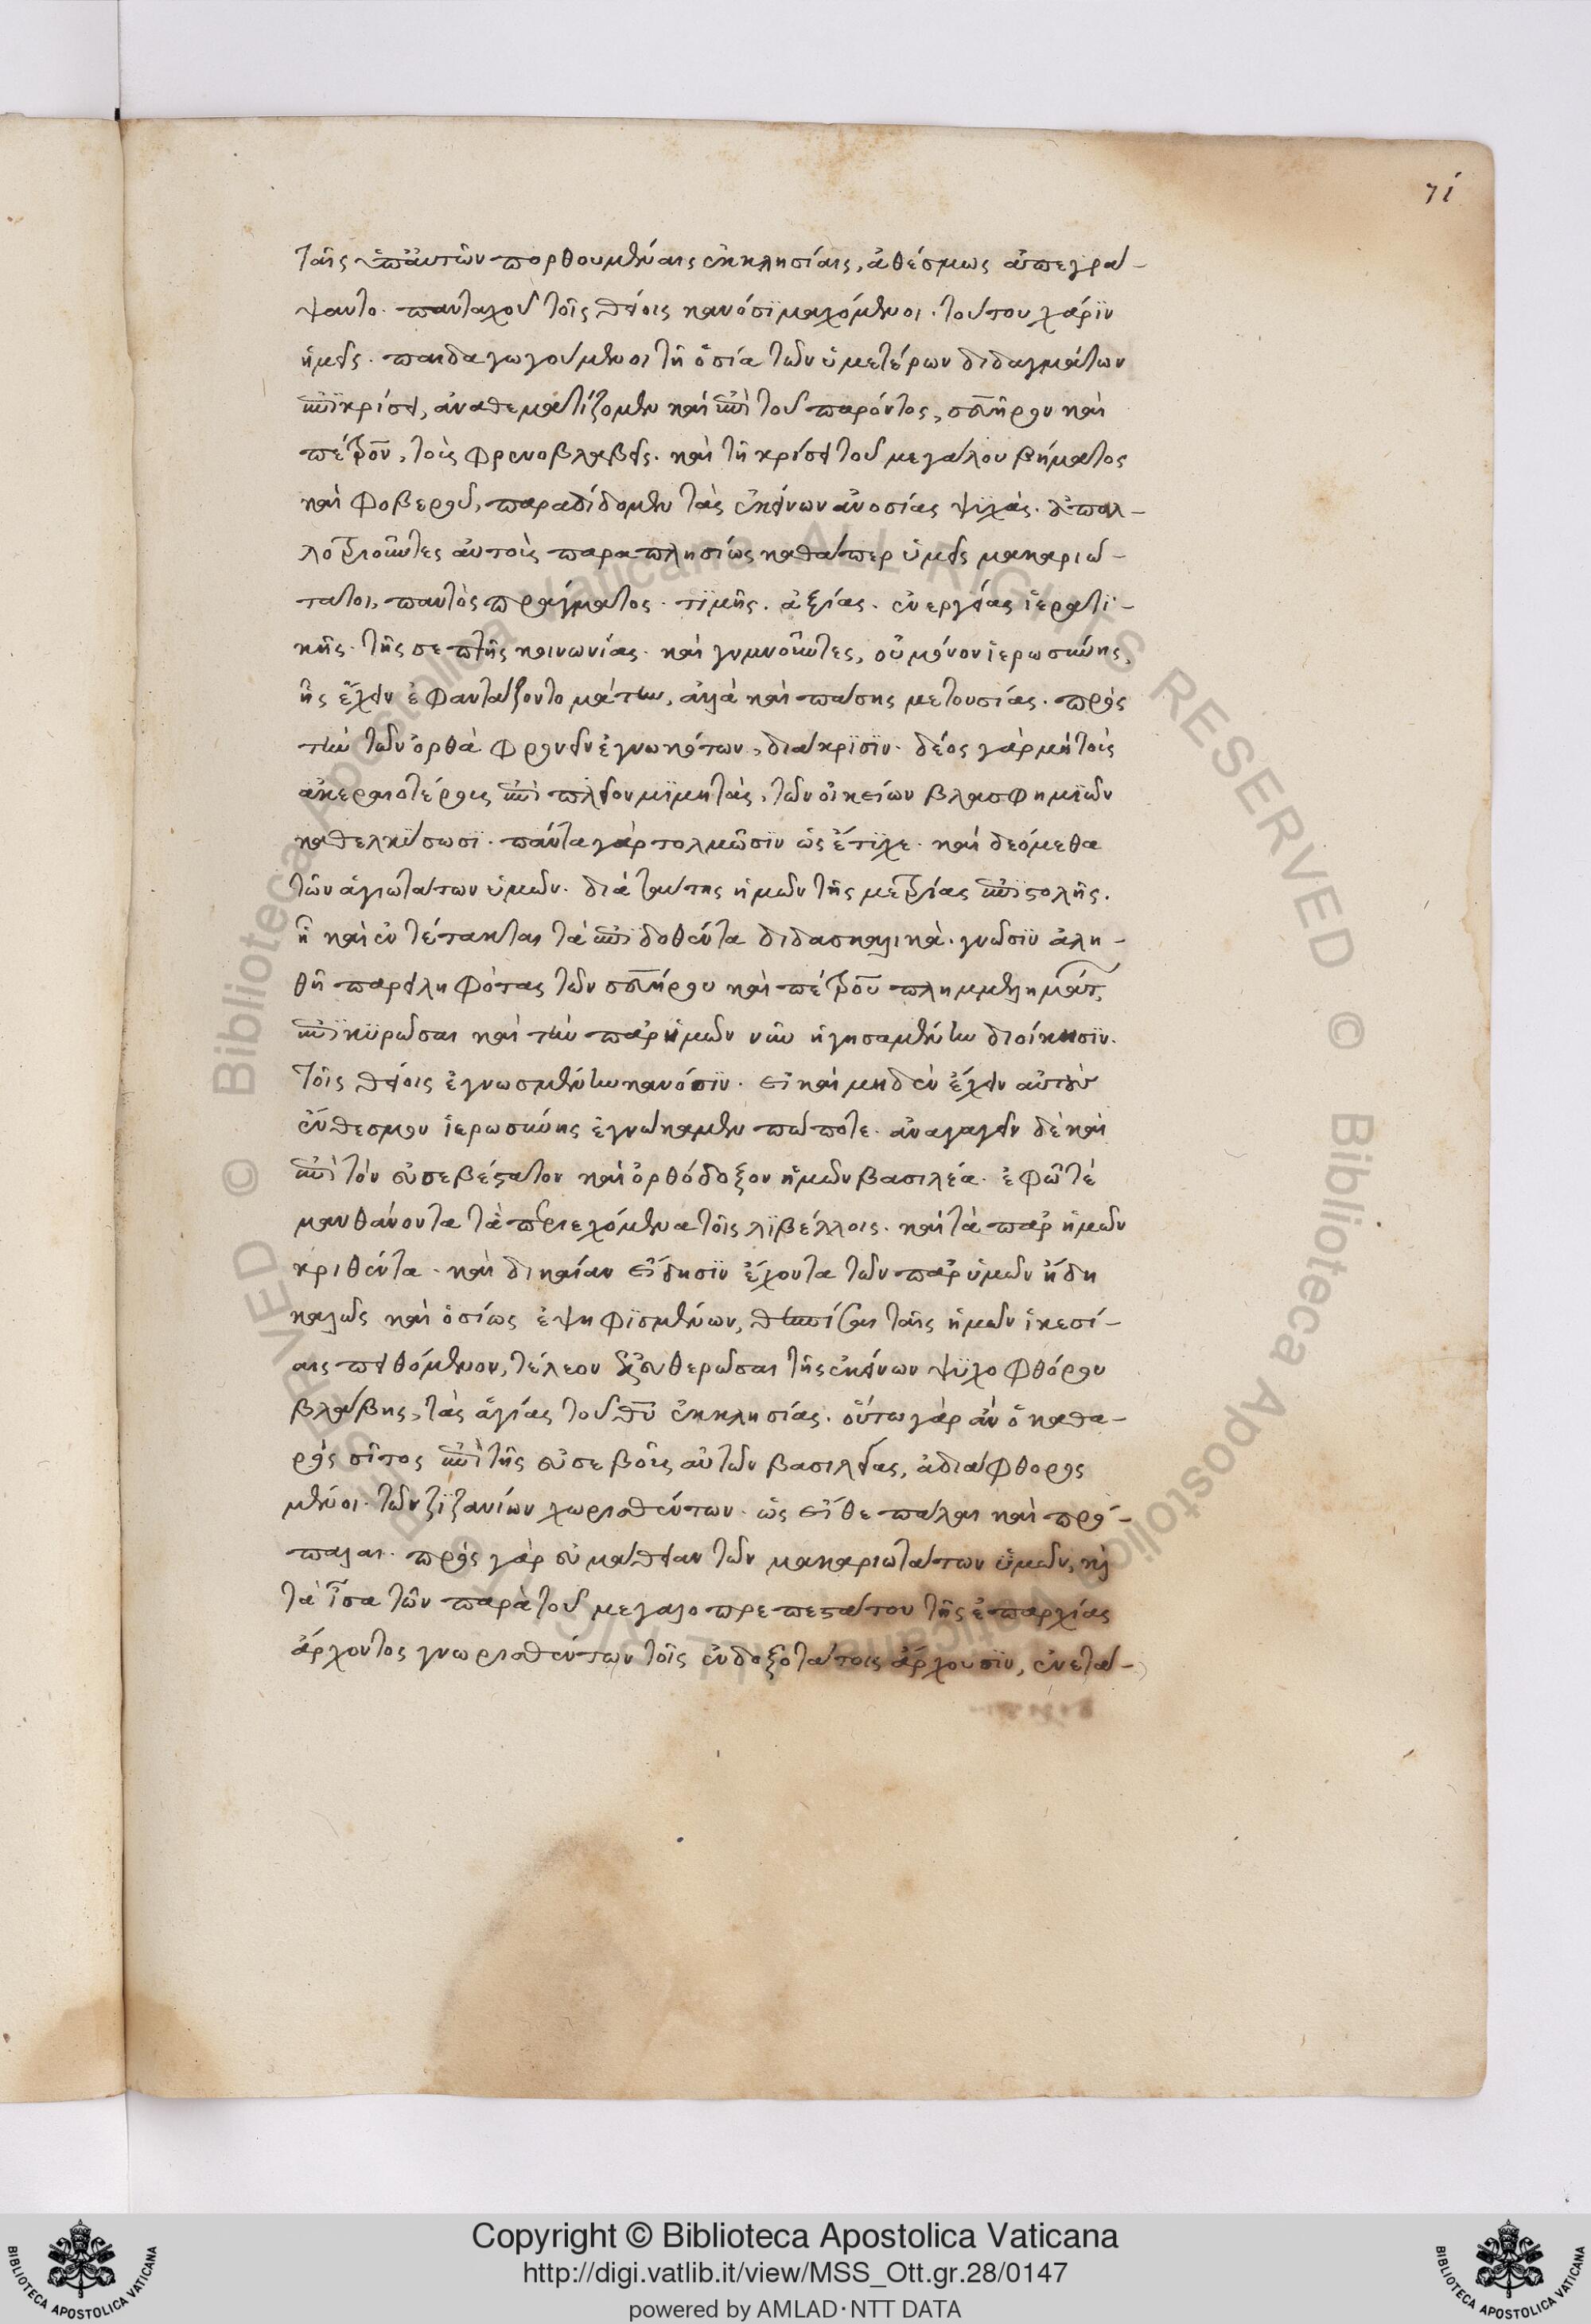 71
ταῖς ὑπ' αὐτῶν πορθουμέναις ἐκκλησίαις, ἀθέσμως ἀπεγρά-
ψαντο· πανταχοῦ τοῖς θείοις κανόσϊ μαχόμενοι· τούτου χάρϊν
ἡμεῖς· παιδαγωγούμενοι τῇ ὁσία τῶν ὑμετέρων διδαγμάτων
ἐπϊκρίσει, ἀναθεματίζομεν καὶ ἐπὶ τοῦ παρόντος, σευῆρον καὶ
πέτρον, τοὺς φρενοβλαβεῖς· καὶ τῇ κρίσει τοῦ μεγάλου βήματος
καὶ φοβεροῦ, παραδίδομεν τὰς ἐκείνων ἀνοσίας ψϋχάς· ἀπαλ-
λοτριοῦντες αὐτοὺς παραπλησίως καθάπερ ὑμεῖς μακαριώ-
τατοι, παντὸς πράγματος· τϊμῆς· ἀξίας· ἐνεργείας ἱερατϊ-
κῆς· τῆς σεπτῆς κοινωνίας· καὶ γυμνοῦντες, οὐ μόνον ἱερωσύνης,
ἧς ἔχειν ἐφαντάζοντο μάτην, ἀλλὰ καὶ πάσης μετουσίας· πρὸς
τὴν τῶν ὀρθὰ φρονεῖν ἐγνωκότων, διάκρϊσϊν· δέος γὰρ μὴ τοὺς
ἀκεραιοτέρους ἐπὶ πλεῖον μϊμητὰς, τῶν οἰκείων βλασφημϊῶν
καθελκύσωσϊ· πάντα γὰρ τολμῶσϊν ὡς ἔτϋχε· καὶ δεόμεθα
τῶν ἁγιωτάτων ὑμῶν· διὰ ταύτης ἡμῶν τῆς μετρίας ἐπϊστολῆς·
ᾗ καὶ ἐντέτακται τὰ ἐπϊδοθέντα διδασκαλικὰ· γνῶσϊν ἀλη-
θῆ παρειληφότας τῶν σευήρου καὶ πέτρου πλημμελημάτων
ἐπϊκϋρῶσαι καὶ τὴν παρ' ἡμῶν νῦν ἡγησαμένην διοίκησϊν·
τοῖς θείοις ἐγνωσμένην κανόσϊν· εἰ καὶ μηδὲν ἔχειν αὐτοὺς
ἔνθεσμον ἱερωσύνης ἐγνώκαμεν πώποτε· ἀναγαγεῖν δὲ καὶ
ἐπὶ τὸν εὐσεβέστατον καὶ ὀρθόδοξον ἡμῶν βασιλέα· ἐφῶ τὲ
μανθάνοντα τὰ περιεχόμενα τοῖς λϊβέλλοις· καὶ τὰ παρ' ἡμῶν
κριθέντα· καὶ δικαίαν εἴδησϊν ἔχοντα τῶν παρ' ὑμῶν ἤδη
καλῶς καὶ ὁσίως ἐψηφϊσμένων, θεσπίσαι ταῖς ἡμῶν ἱκεσί-
αις πειθόμενον, τέλεον ἐξελευθερῶσαι τῆς ἐκείνων ψϋχοφθόρου
βλάβης, τὰς ἁγίας τοῦ θῦ ἐκκλησίας· οὕτω γὰρ ἂν ὁ καθα-
ρὸς σῖτος ἐπὶ τῆς εὐσεβοῦς αὐτῶν βασιλείας, ἀδιάφθορος
μένοι· τῶν ζϊζανίων χωρισθέντων· ὡς εἴθε πάλαι καὶ πρό-
παλαι· πρὸς γὰρ εὐμάθειαν τῶν μακαριωτάτων ὑμῶν, καὶ
τὰ ἶσα τῶν παρὰ τοῦ μεγαλοπρεπεστάτου τῆς ἐπαρχίας
ἄρχοντος γνωρισθέντων τοῖς ἐνδοξοτάτοις ἄρχουσϊν, ἐνετά-
Copyright © Biblioteca Apostolica Vaticana
http://digi.vatlib.it/view/MSS_Ott.gr.28/0147
powered by AMLAD·NTT DATA
BIBLIOTECA APOSTOLICA VATICANA
BIBLIOTECA APOSTOLICA VATICANA